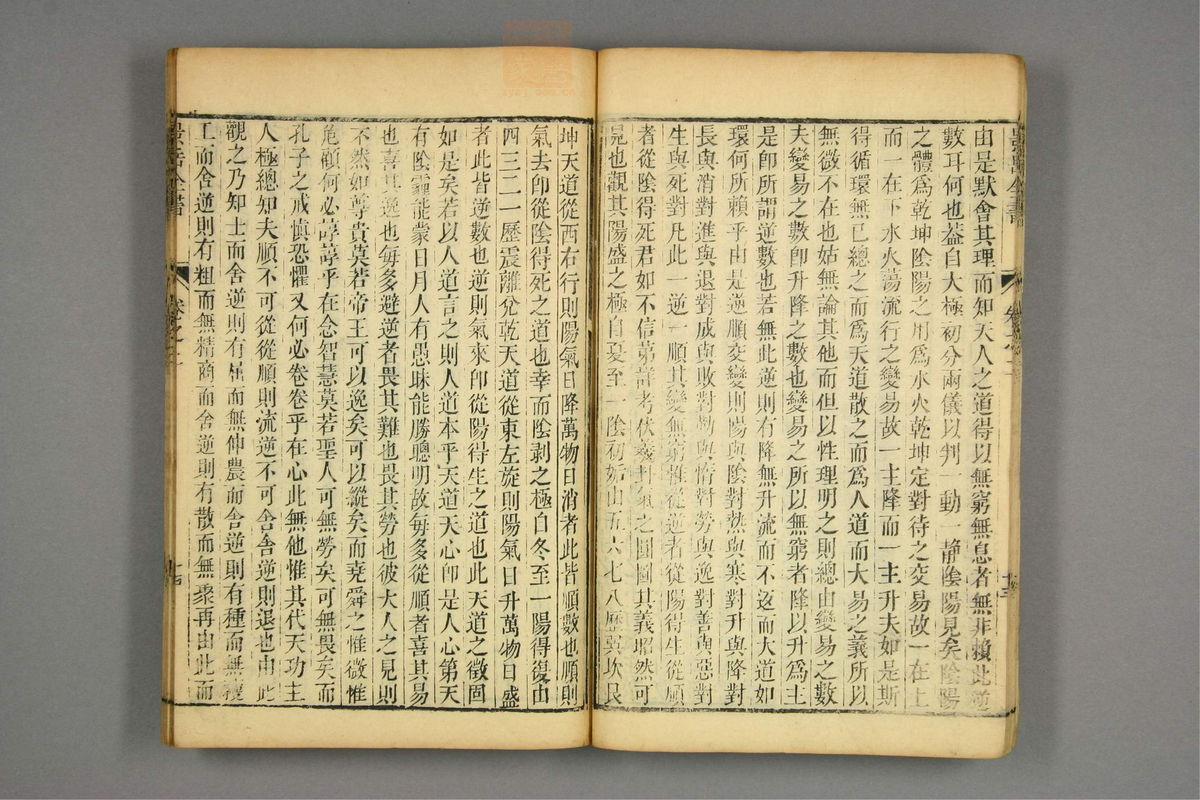 由是默會其理而知天人之道得以無窮無息者無非賴此逆
數耳何也蓋自大極初分兩儀以判一動一静陰陽見矣陰陽
之體爲乾坤陰陽之用爲水火乾坤定對待之交易故一在上
而一在下水火蕩流行之變易故一主降而一主升夫如是斯
得循環無已總之而爲天道散之而爲人道而大易之義所以
無微不在也姑無論其他而但以性理明之則總由變易之數
夫變易之數即升降之數也變易之所以無窮者降以升爲主
是卽所謂逆數也若無此逆則有降無升流而不返而大道如
環何所賴乎由是逆順交變則陽與陰對熱與寒對升與降對
長與消對進與退對成與敗對勤與惰對勞與逸對善與惡對
生與死對凡此一逆一順其變無窮惟從逆者從陽得生從順
者從陰得死君如不信第詳考伏羲卦氣之圓圖其義昭然可
見也觀其陽盛之極自夏至一陰初姤由五六七八歷巽坎艮
坤天道從西右行則陽氣日降萬物日消者此皆順數也順則
氣去卽從陰得死之道也幸而陰剥之極自冬至一陽得復由
四三二一歷震離兌乾天道從東左旋則陽氣日升萬物日盛
者此皆逆數也逆則氣來卽從陽得生之道也此天道之徵固
如是矣若以人道言之則人道本乎天道天心卽是人心第天
有陰霾能蒙日月人有愚昧能勝聰明故每多從順者喜其易
也喜其逸也每多避逆者畏其難也畏其勞也彼大人之見則
不然如尊貴莫若帝王可以逸矣可以縱矣而堯舜之惟微惟
危顧何必諄諄乎在念智慧莫若聖人可無勞矣可無畏矣而
孔子之戒慎恐懼又何必卷卷乎在心此無他惟其代天功主
人極總知夫順不可從從順則流逆不可舍舍逆則退也由此
觀之乃知士而舍逆則有屈而無伸農而舍逆則有種而無穫
工而舍逆則有粗而無精商而舍逆則有散而無聚再由此而
景岳全書
卷之二
十四